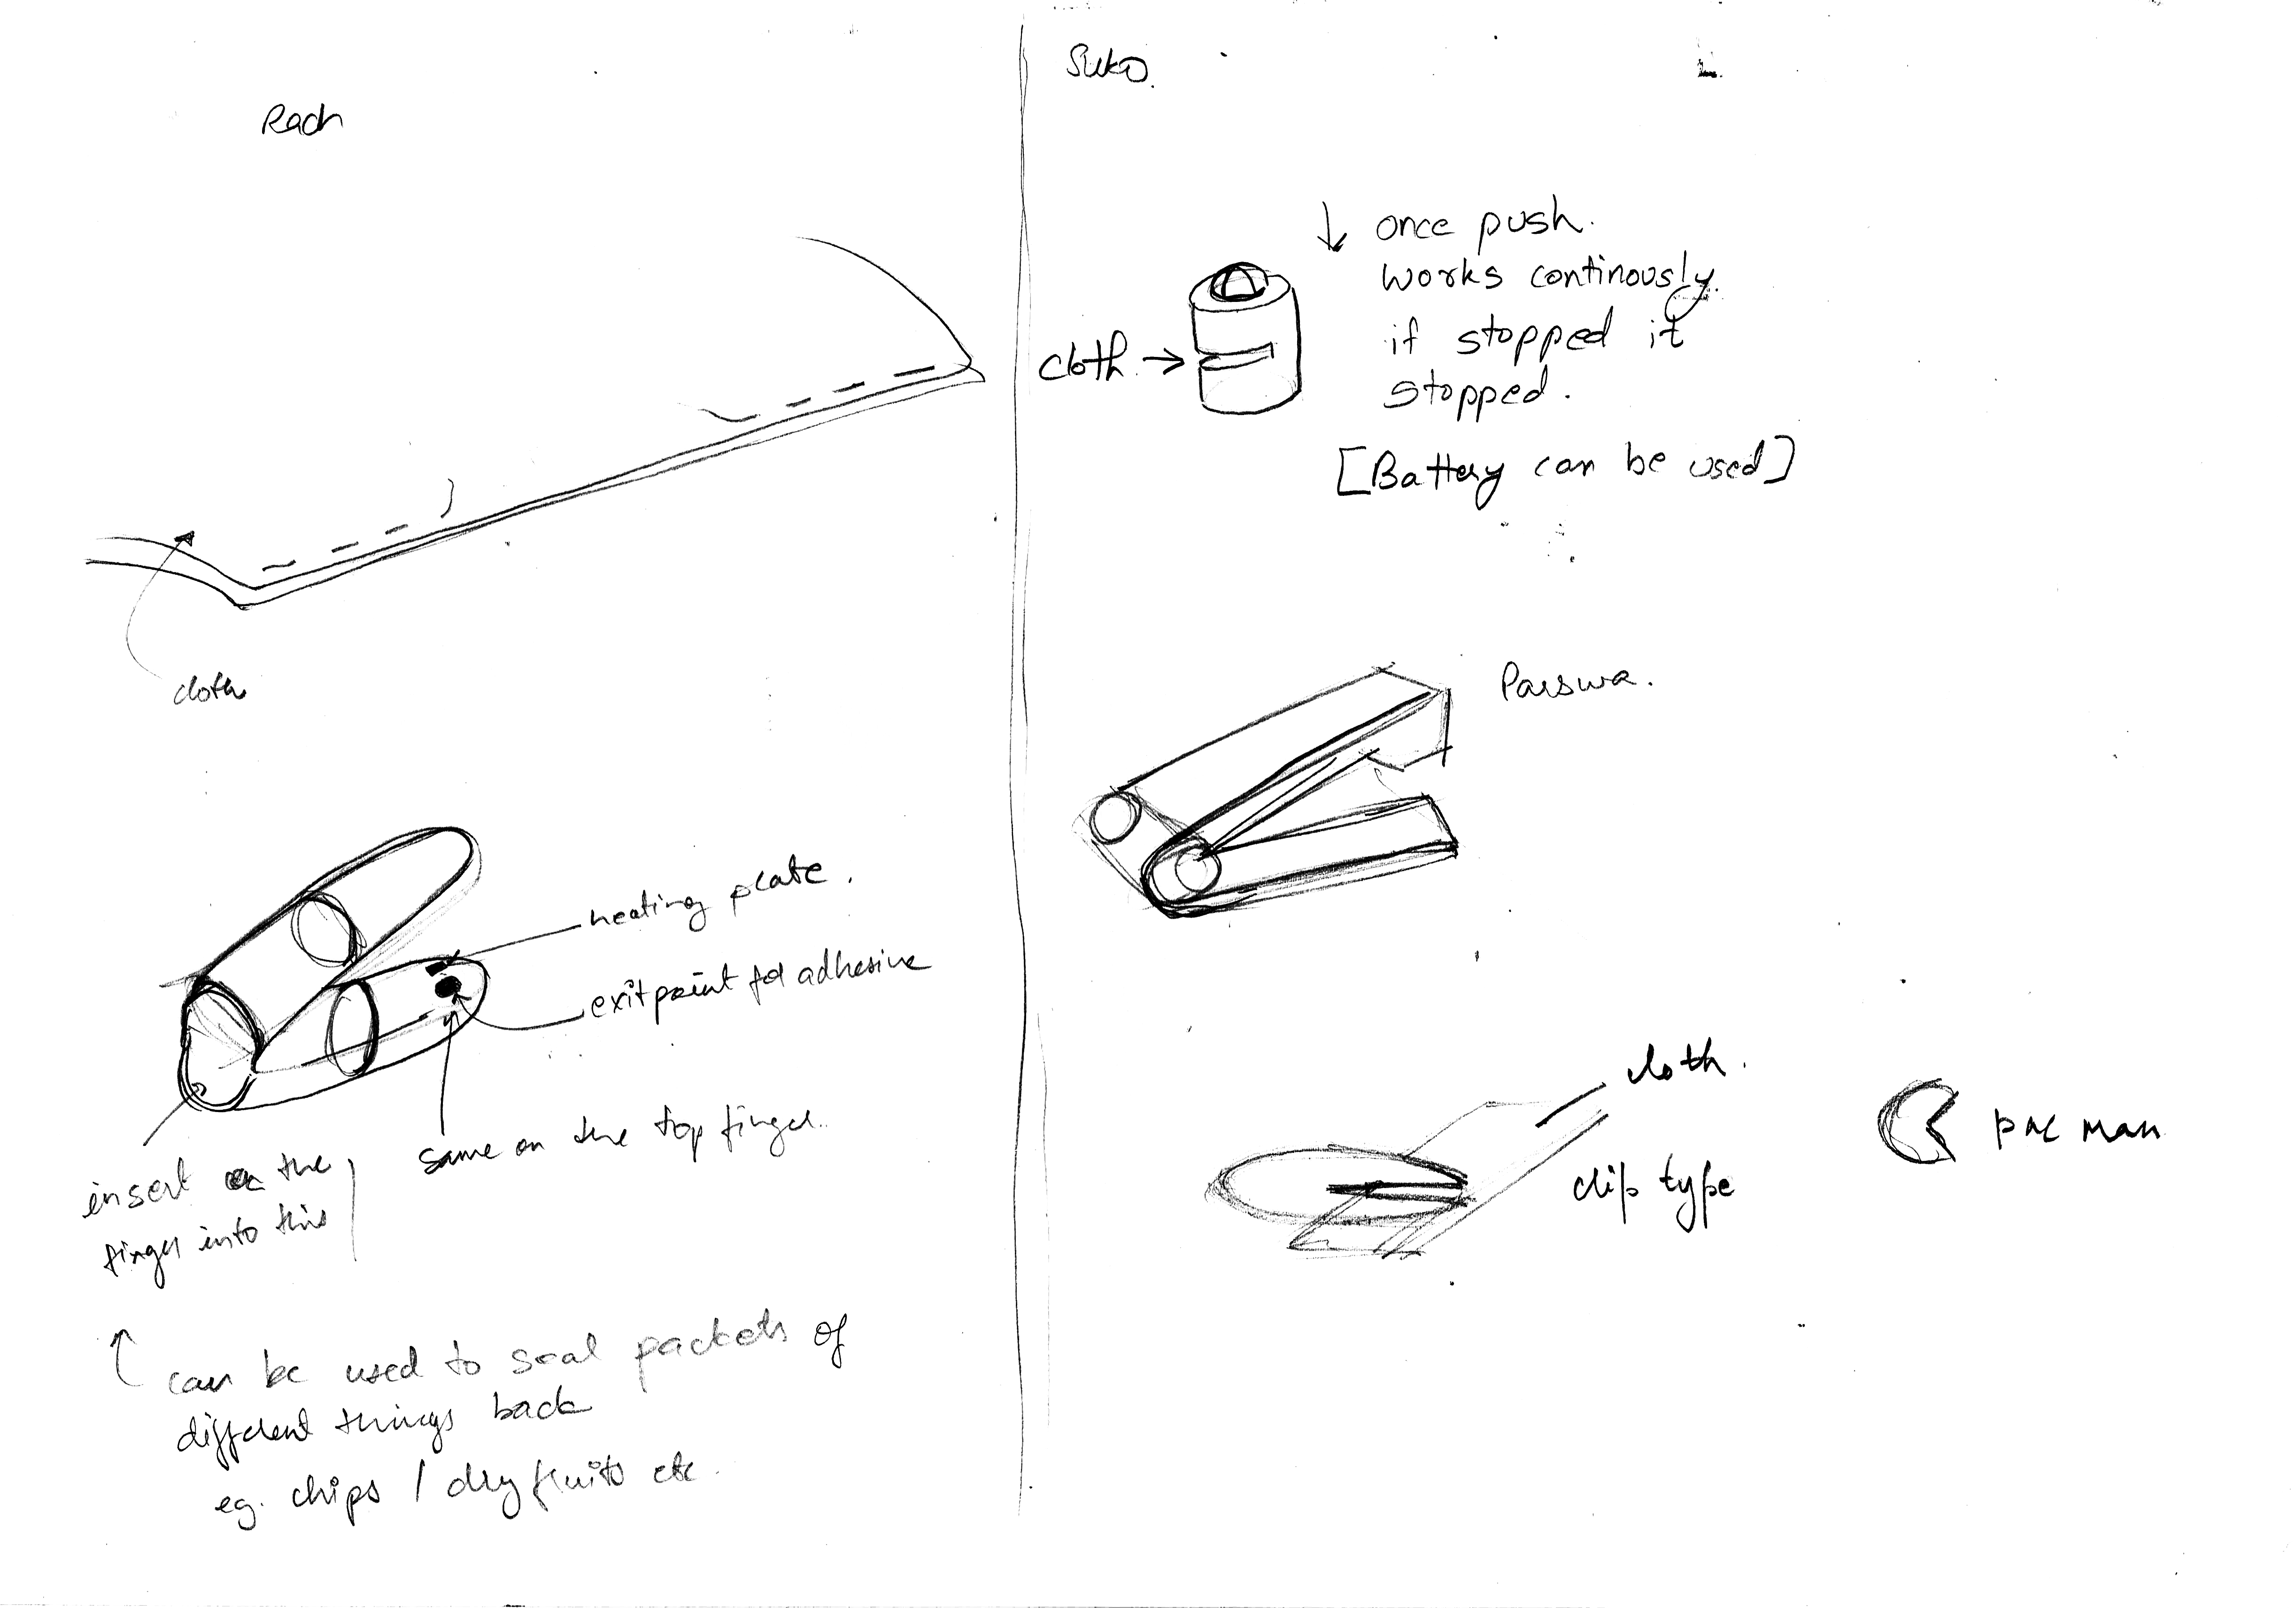 Rach
cloth
heating plate.
exit point for adhesive
same on the top finger.
insert the
finger into this
can be used to seal packets of
different things back
eg. chips / dry fruits etc.
Suko.
once push.
works continously.
if stopped it
stopped.
[Battery can be used]
cloth
Parswa.
cloth.
clip type
pac man